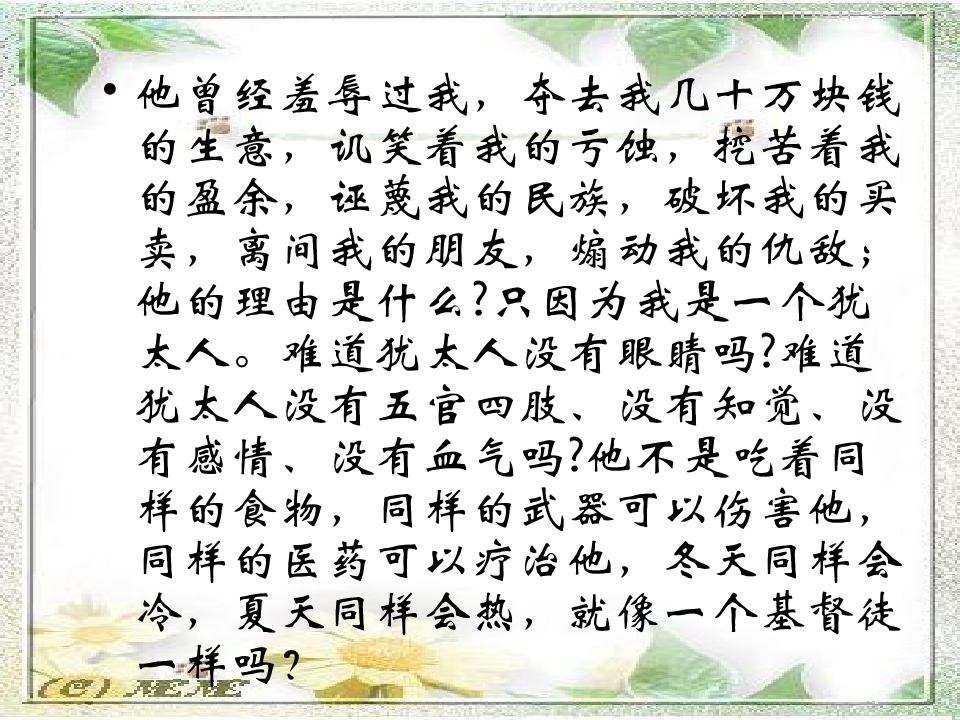 •他曾经羞辱过我，夺去我几十万块钱
的生意，讥笑着我的亏蚀，挖苦着我
的盈余，诬蔑我的民族，破坏我的买
卖，离间我的朋友，煽动我的仇敌；
他的理由是什么?只因为我是一个犹
太人。难道犹太人没有眼睛吗?难道
犹太人没有五官四肢、没有知觉、没
有感情、没有血气吗?他不是吃着同
样的食物，同样的武器可以伤害他，
同样的医药可以疗治他，冬天同样会
冷，夏天同样会热，就像一个基督徒
一样吗？